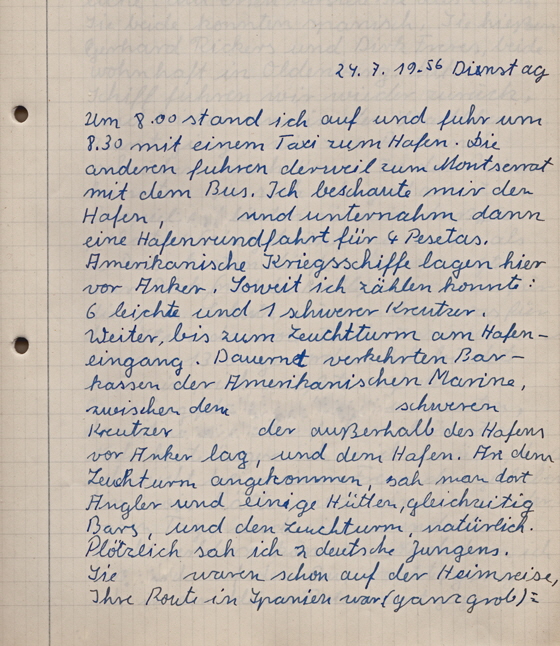 24.7.1956 Dienstag
Um 8.00 stand ich auf und fuhr um
8.30 mit einem Taxi zum Hafen. Die
anderen fuhren derweil zum Montserrat
mit dem Bus. Ich beschaute mir den
Hafen, und unternahm dann
eine Hafenrundfahrt für 4 Pesetas.
Amerikanische Kriegsschiffe lagen hier
vor Anker. Soweit ich zählen konnte:
6 leichte und 1 schwerer Kreutzer.
Weiter, bis zum Leuchtturm am Hafen-
eingang. Dauernt verkehrten Bar-
kassen der Amerikanischen Marine,
zwischen dem schweren
Kreutzer der außerhalb des Hafens
vor Anker lag, und dem Hafen. An dem
Leuchturm angekommen, sah man dort
Angler und einige Hütten, gleichzeitig
Bars, und den Leuchturm, natürlich.
Plötzlich sah ich 2 deutsche Jungens.
Sie waren schon auf der Heimreise,
Ihre Route in Spanien war (ganz grob):